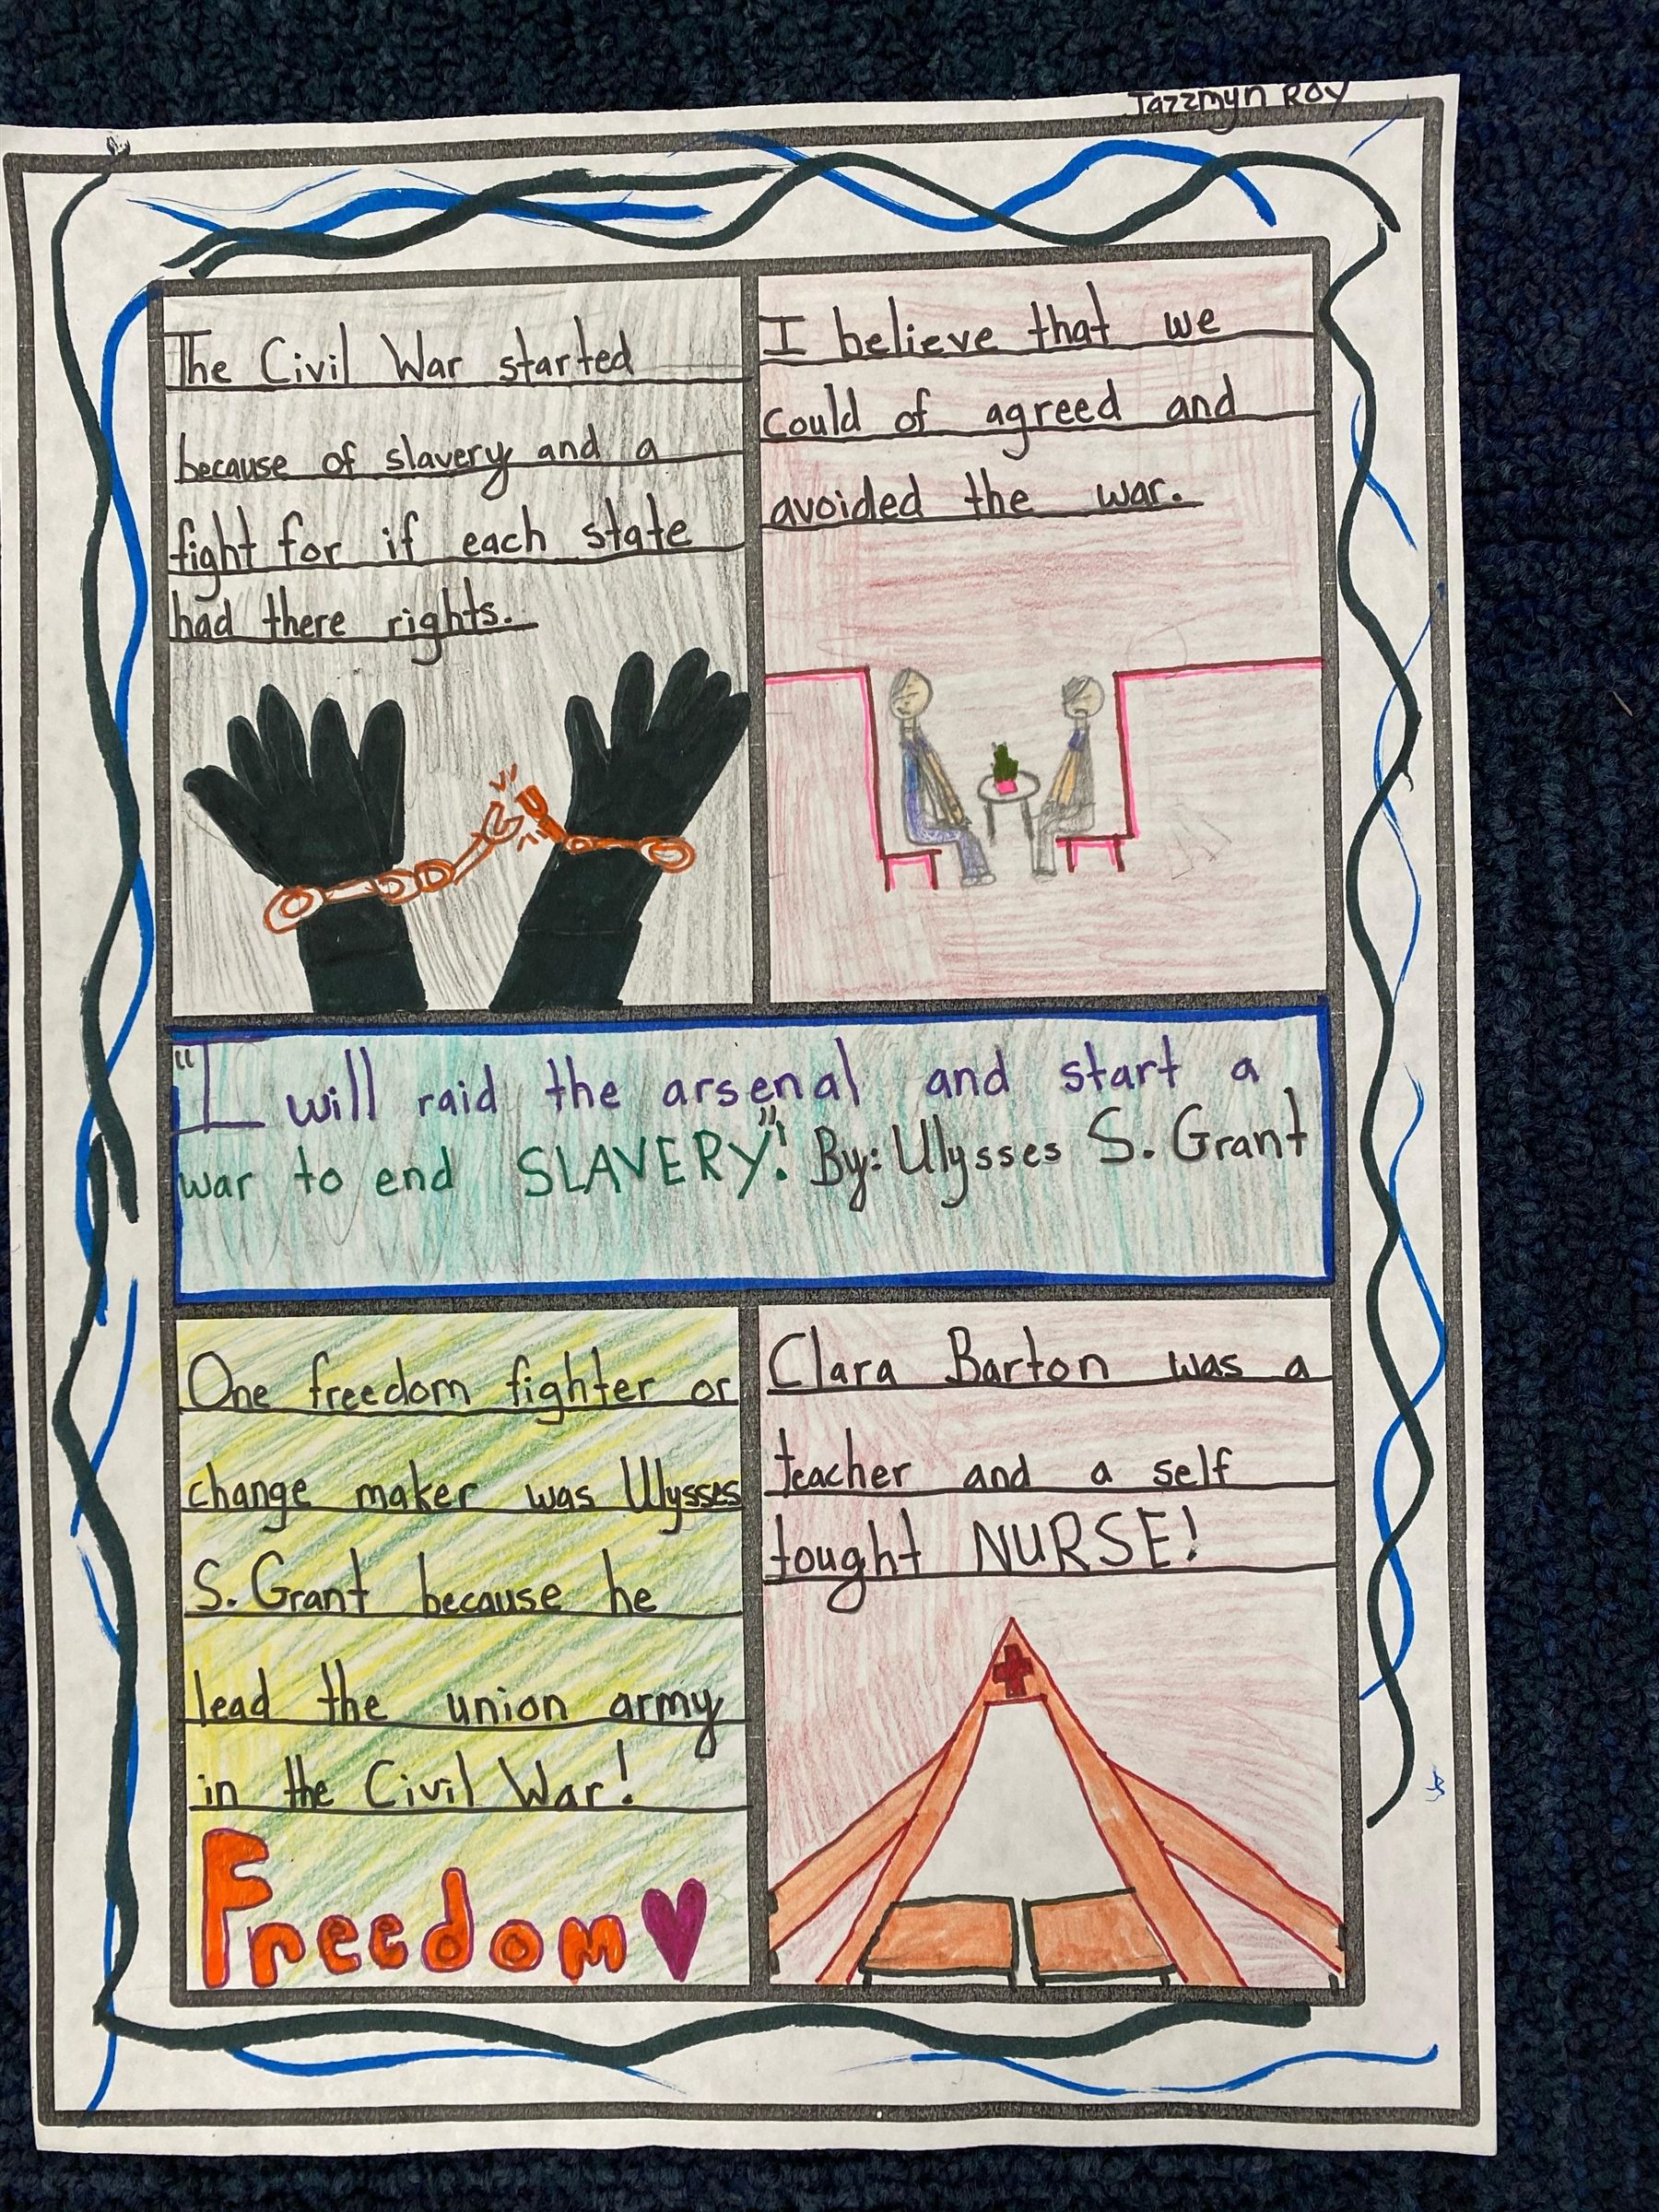 Jazzmyn Roy
The Civil War started
because of slavery and a
fight for if each state
had there rights.
I believe that we
could of agreed and
avoided the war.
"I will raid the arsenal and start a
war to end SLAVERY"! By: Ulysses S. Grant
One freedom fighter or
change maker was Ulysses
S. Grant because he
lead the union army
in the Civil War!
Freedom
Clara Barton was a
teacher and a self
tought NURSE!